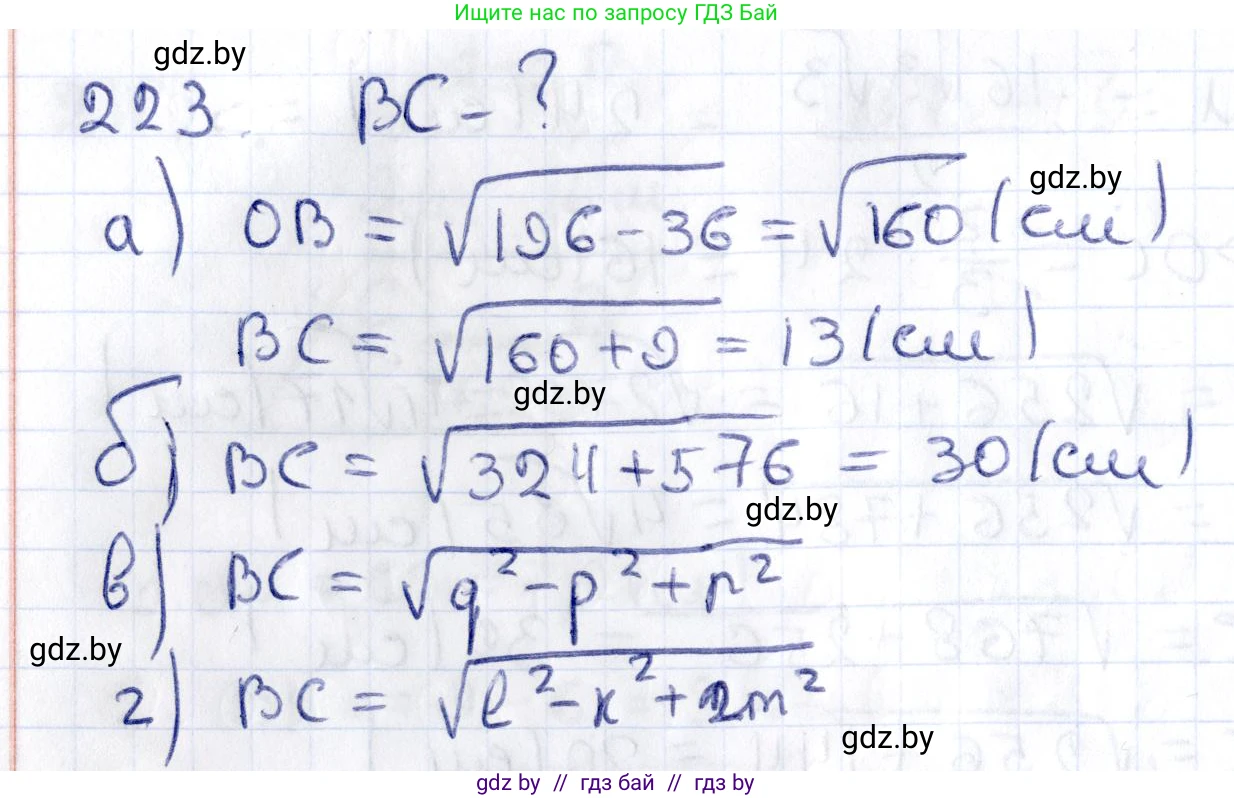 Ищите нас по запросу ГДЗ Бай
gdz.by
223. BC - ?
gdz.by
а) OB = √196-36 = √160 (см)
BC = √160+9 = 13 (см)
gdz.by
б) BC = √324+576 = 30 (см)
gdz.by
в) BC = √q²-p²+n²
gdz.by
г) BC = √l²-k²+2m²
gdz.by
gdz by // гдз бай // гдз by